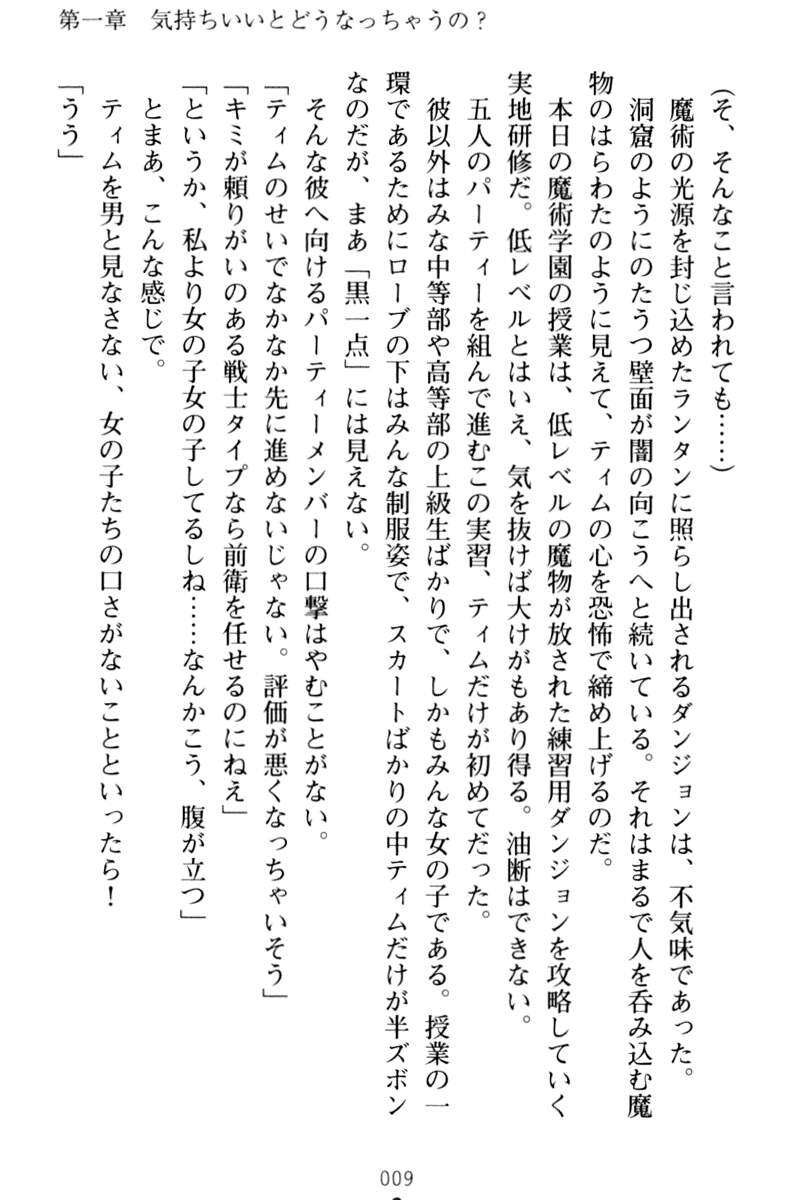 第一章　気持ちいいとどうなっちゃうの？
（そ、そんなこと言われても……）
　魔術の光源を封じ込めたランタンに照らし出されるダンジョンは、不気味であった。
　洞窟のようにのたうつ壁面が闇の向こうへと続いている。それはまるで人を呑み込む魔
物のはらわたのように見えて、ティムの心を恐怖で締め上げるのだ。
　本日の魔術学園の授業は、低レベルの魔物が放された練習用ダンジョンを攻略していく
実地研修だ。低レベルとはいえ、気を抜けば大けがもあり得る。油断はできない。
　五人のパーティーを組んで進むこの実習、ティムだけが初めてだった。
　彼以外はみな中等部や高等部の上級生ばかりで、しかもみんな女の子である。授業の一
環であるためにローブの下はみんな制服姿で、スカートばかりの中ティムだけが半ズボン
なのだが、まあ「黒一点」には見えない。
　そんな彼へ向けるパーティーメンバーの口撃はやむことがない。
「ティムのせいでなかなか先に進めないじゃない。評価が悪くなっちゃいそう」
「キミが頼りがいのある戦士タイプなら前衛を任せるのにねえ」
「というか、私より女の子女の子してるしね……なんかこう、腹が立つ」
　とまあ、こんな感じで。
　ティムを男と見なさない、女の子たちの口さがないことといったら！
「うう」
009